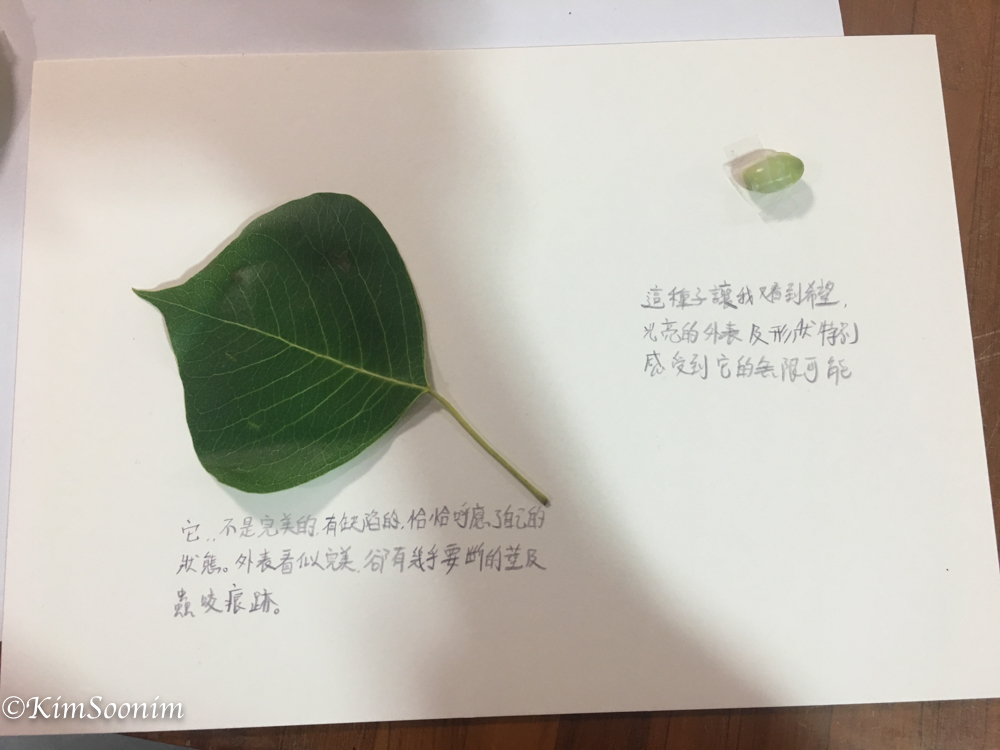 這種子讓我看到希望,
光亮的外表及形狀特別
感受到它的無限可能
它..不是完美的,有缺陷的,恰恰呼應了自己的
狀態。外表看似完美,卻有幾乎要斷的莖及
蟲咬痕跡。
©KimSoonim